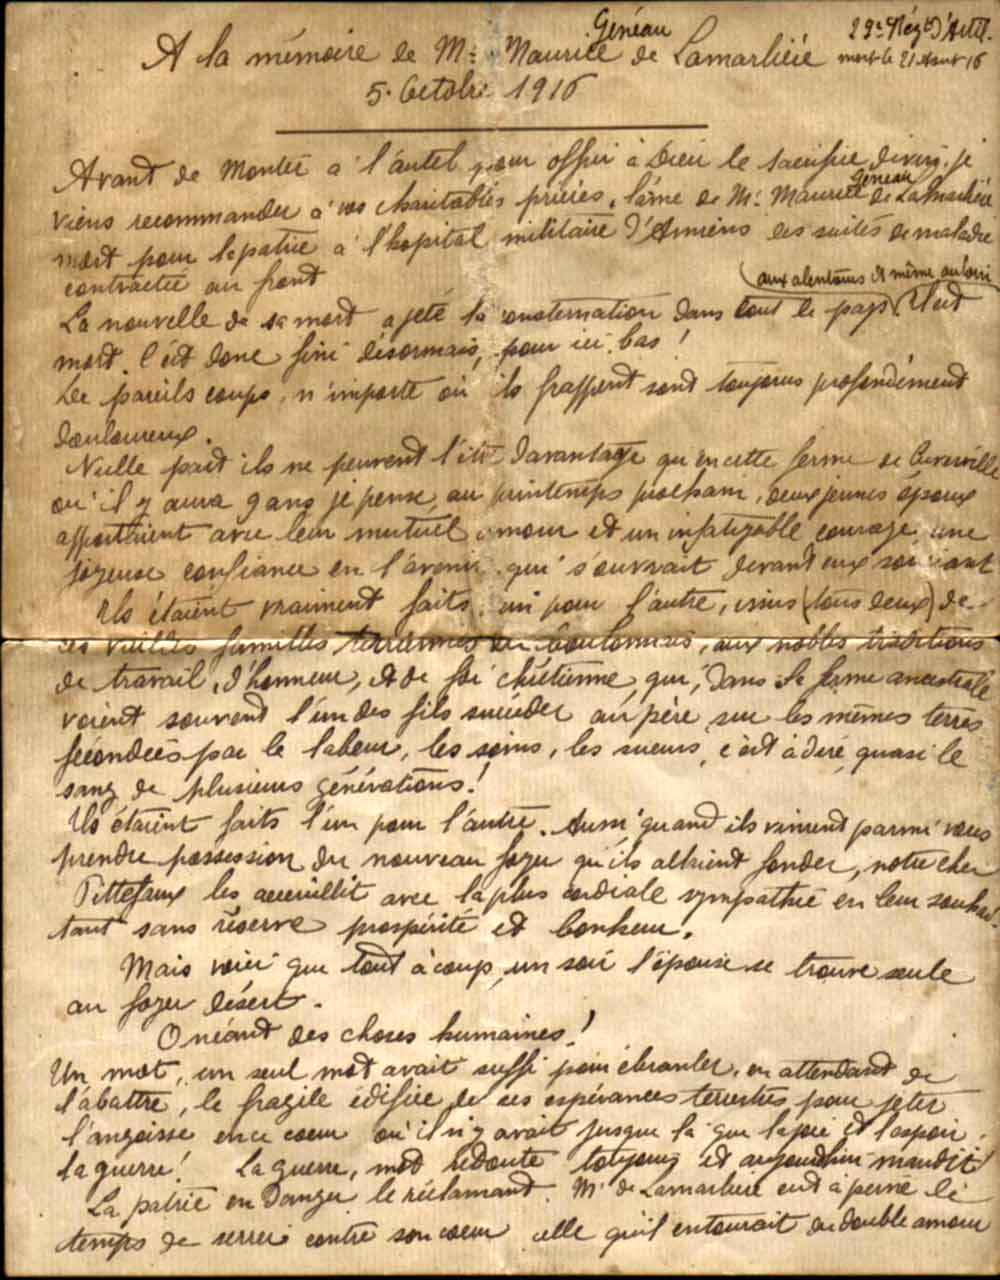 Géneau 29e Régt d'Artil.
A la mémoire de Mr Maurice de Lamarlière mort le 21 Aout 16
5. Octobre 1916
Avant de monter à l'autel pour offrir à Dieu le sacrifice divin, je
Géneau
viens recommander à vos charitables prières, l'âme de Mr Maurice de Lamarlière
mort pour la patrie à l'hopital militaire d'Amiens des suites de maladie
contractée au front
(aux alentours et même au loin
La nouvelle de sa mort a jeté la consternation dans tout le pays. Il est
mort. C'est donc fini désormais, pour ici bas !
De pareils coups, n'importe où ils frappent sont toujours profondément
douloureux.
Nulle part ils ne peuvent l'être davantage qu'en cette ferme de
où il y aura 9 ans je pense, au printemps prochain, deux jeunes époux
apportaient avec leur mutuel amour et un infatigable courage, une
joyeuse confiance en l'avenir qui s'ouvrait devant eux souriant
Ils étaient vraiment faits l'un pour l'autre, venus (tous deux) de
ces vieilles familles terriennes du Boulonnais, aux nobles traditions
de travail, d'honneur, et de foi chrétienne, qui, dans la ferme ancestrale
voient souvent l'un des fils succéder au père sur les mêmes terres
fécondées par le labeur, les soins, les sueurs, c'est à dire quasi le
sang de plusieurs générations !
Ils étaient faits l'un pour l'autre. Aussi quand ils vinrent parmi vous
prendre possession du nouveau foyer qu'ils allaient fonder, notre cher
Pittefaux les accueillit avec la plus cordiale sympathie en leur souhai-
tant sans réserve prospérité et bonheur.
Mais voici que tout à coup, un soir l'épouse se trouve seule
au foyer désert.
O néant des choses humaines !
Un mot, un seul mot avait suffi pour ébranler, en attendant de
l'abattre, le fragile édifice de ces espérances terrestres pour jeter
l'angoisse en ce coeur où il n'y avait jusque là que la joie et l'espoir.
la guerre ! La guerre, mot redouté toujours et aujourd'hui maudit !
La patrie en danger le réclamant. Mr de Lamarlière eut à peine le
temps de serrer contre son coeur celle qu'il entourait du double amour